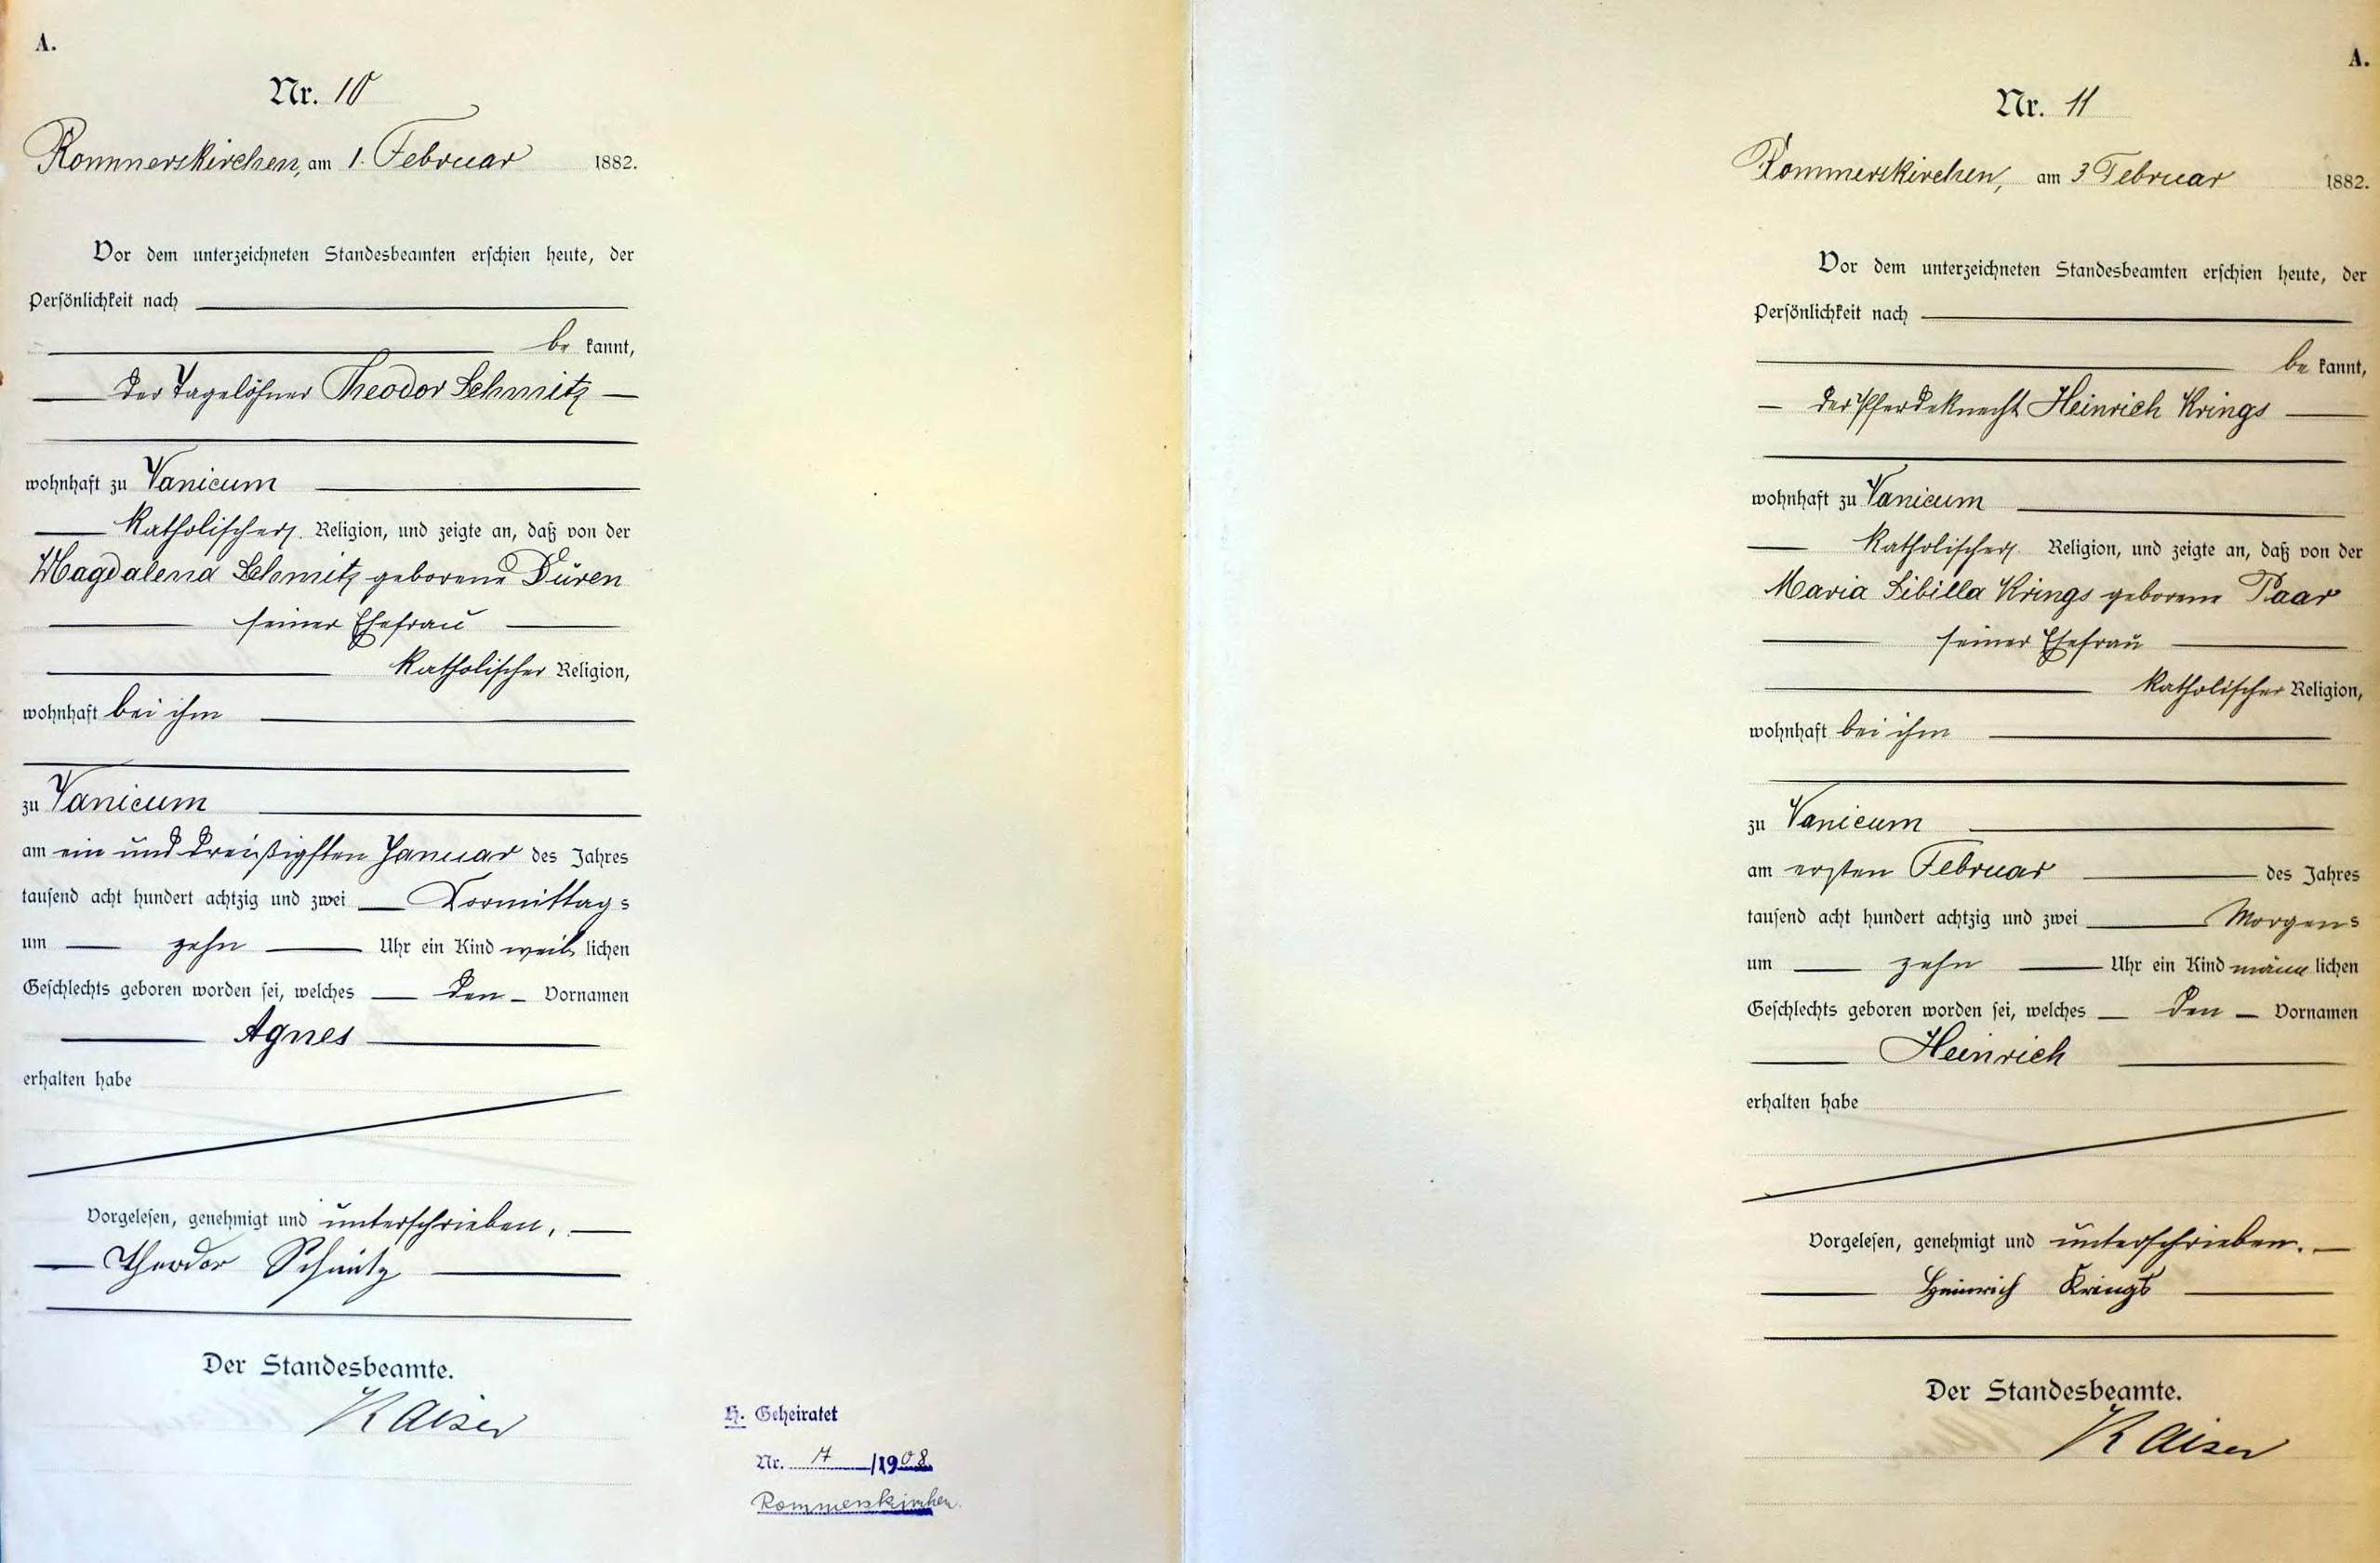 A.
Nr. 10
Rommerskirchen, am 1. Februar 1882.
Vor dem unterzeichneten Standesbeamten erschien heute, der
Persönlichkeit nach
be kannt,
der Tagelöhner Theodor Schmitz
wohnhaft zu Vanicum
katholischer Religion, und zeigte an, daß von der
Magdalena Schmitz geborene Düren
seiner Ehefrau
katholischer Religion,
wohnhaft bei ihm
zu Vanicum
am ein und dreißigsten Januar des Jahres
tausend acht hundert achtzig und zwei Vormittags
um zehn Uhr ein Kind weiblichen
Geschlechts geboren worden sei, welches den Vornamen
Agnes
erhalten habe
Vorgelesen, genehmigt und unterschrieben.
Theodor Schmitz
Der Standesbeamte.
Kaiser
H. Geheiratet
Nr. 7 /1908
Rommerskirchen.
A.
Nr. 11
Rommerskirchen, am 3 Februar 1882.
Vor dem unterzeichneten Standesbeamten erschien heute, der
Persönlichkeit nach
be kannt,
der Pferdeknecht Heinrich Krings
wohnhaft zu Vanicum
katholischer Religion, und zeigte an, daß von der
Maria Sibilla Krings geborene Paar
seiner Ehefrau
katholischer Religion,
wohnhaft bei ihm
zu Vanicum
am ersten Februar des Jahres
tausend acht hundert achtzig und zwei Morgens
um zehn Uhr ein Kind männlichen
Geschlechts geboren worden sei, welches den Vornamen
Heinrich
erhalten habe
Vorgelesen, genehmigt und unterschrieben.
Heinrich Krings
Der Standesbeamte.
Kaiser